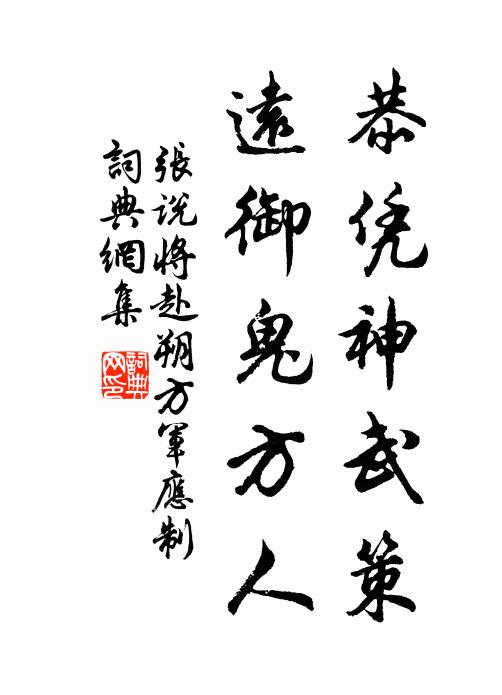 恭凭神武策
遠御鬼方人
張说將赴朔方軍應制
詞典網集
詞典
网印